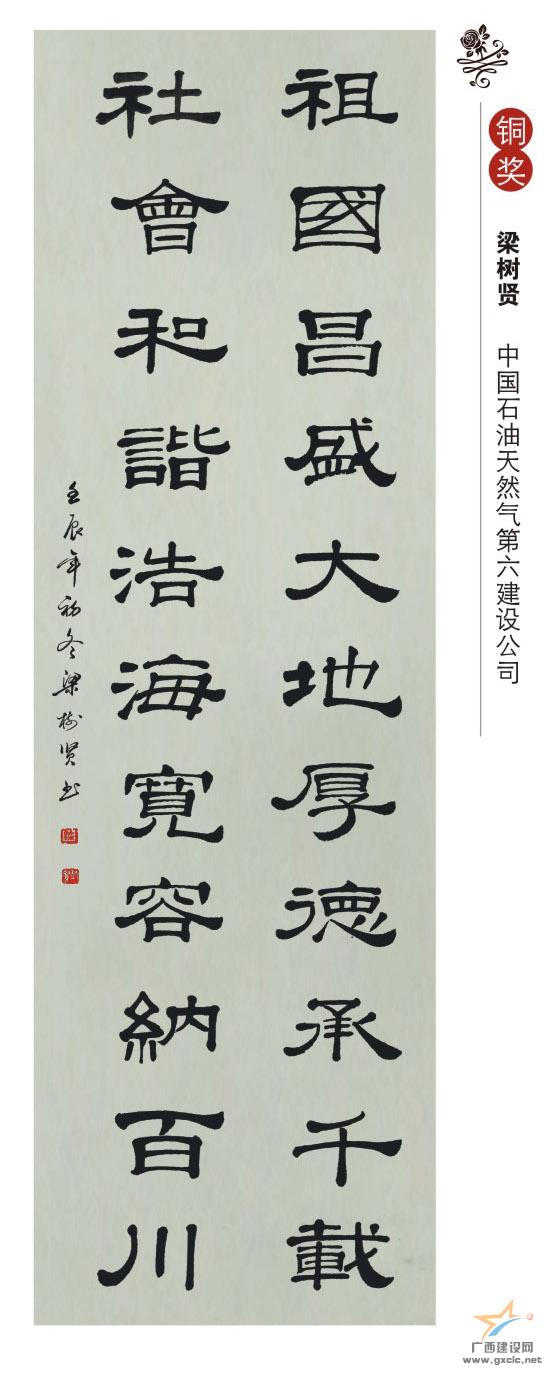 祖國昌盛大地厚德承千載
社會和諧浩海寬容納百川
壬辰年初冬梁樹賢书
铜奖
梁树贤
中国石油天然气第六建设公司
广西建设网
www.gxcic.net